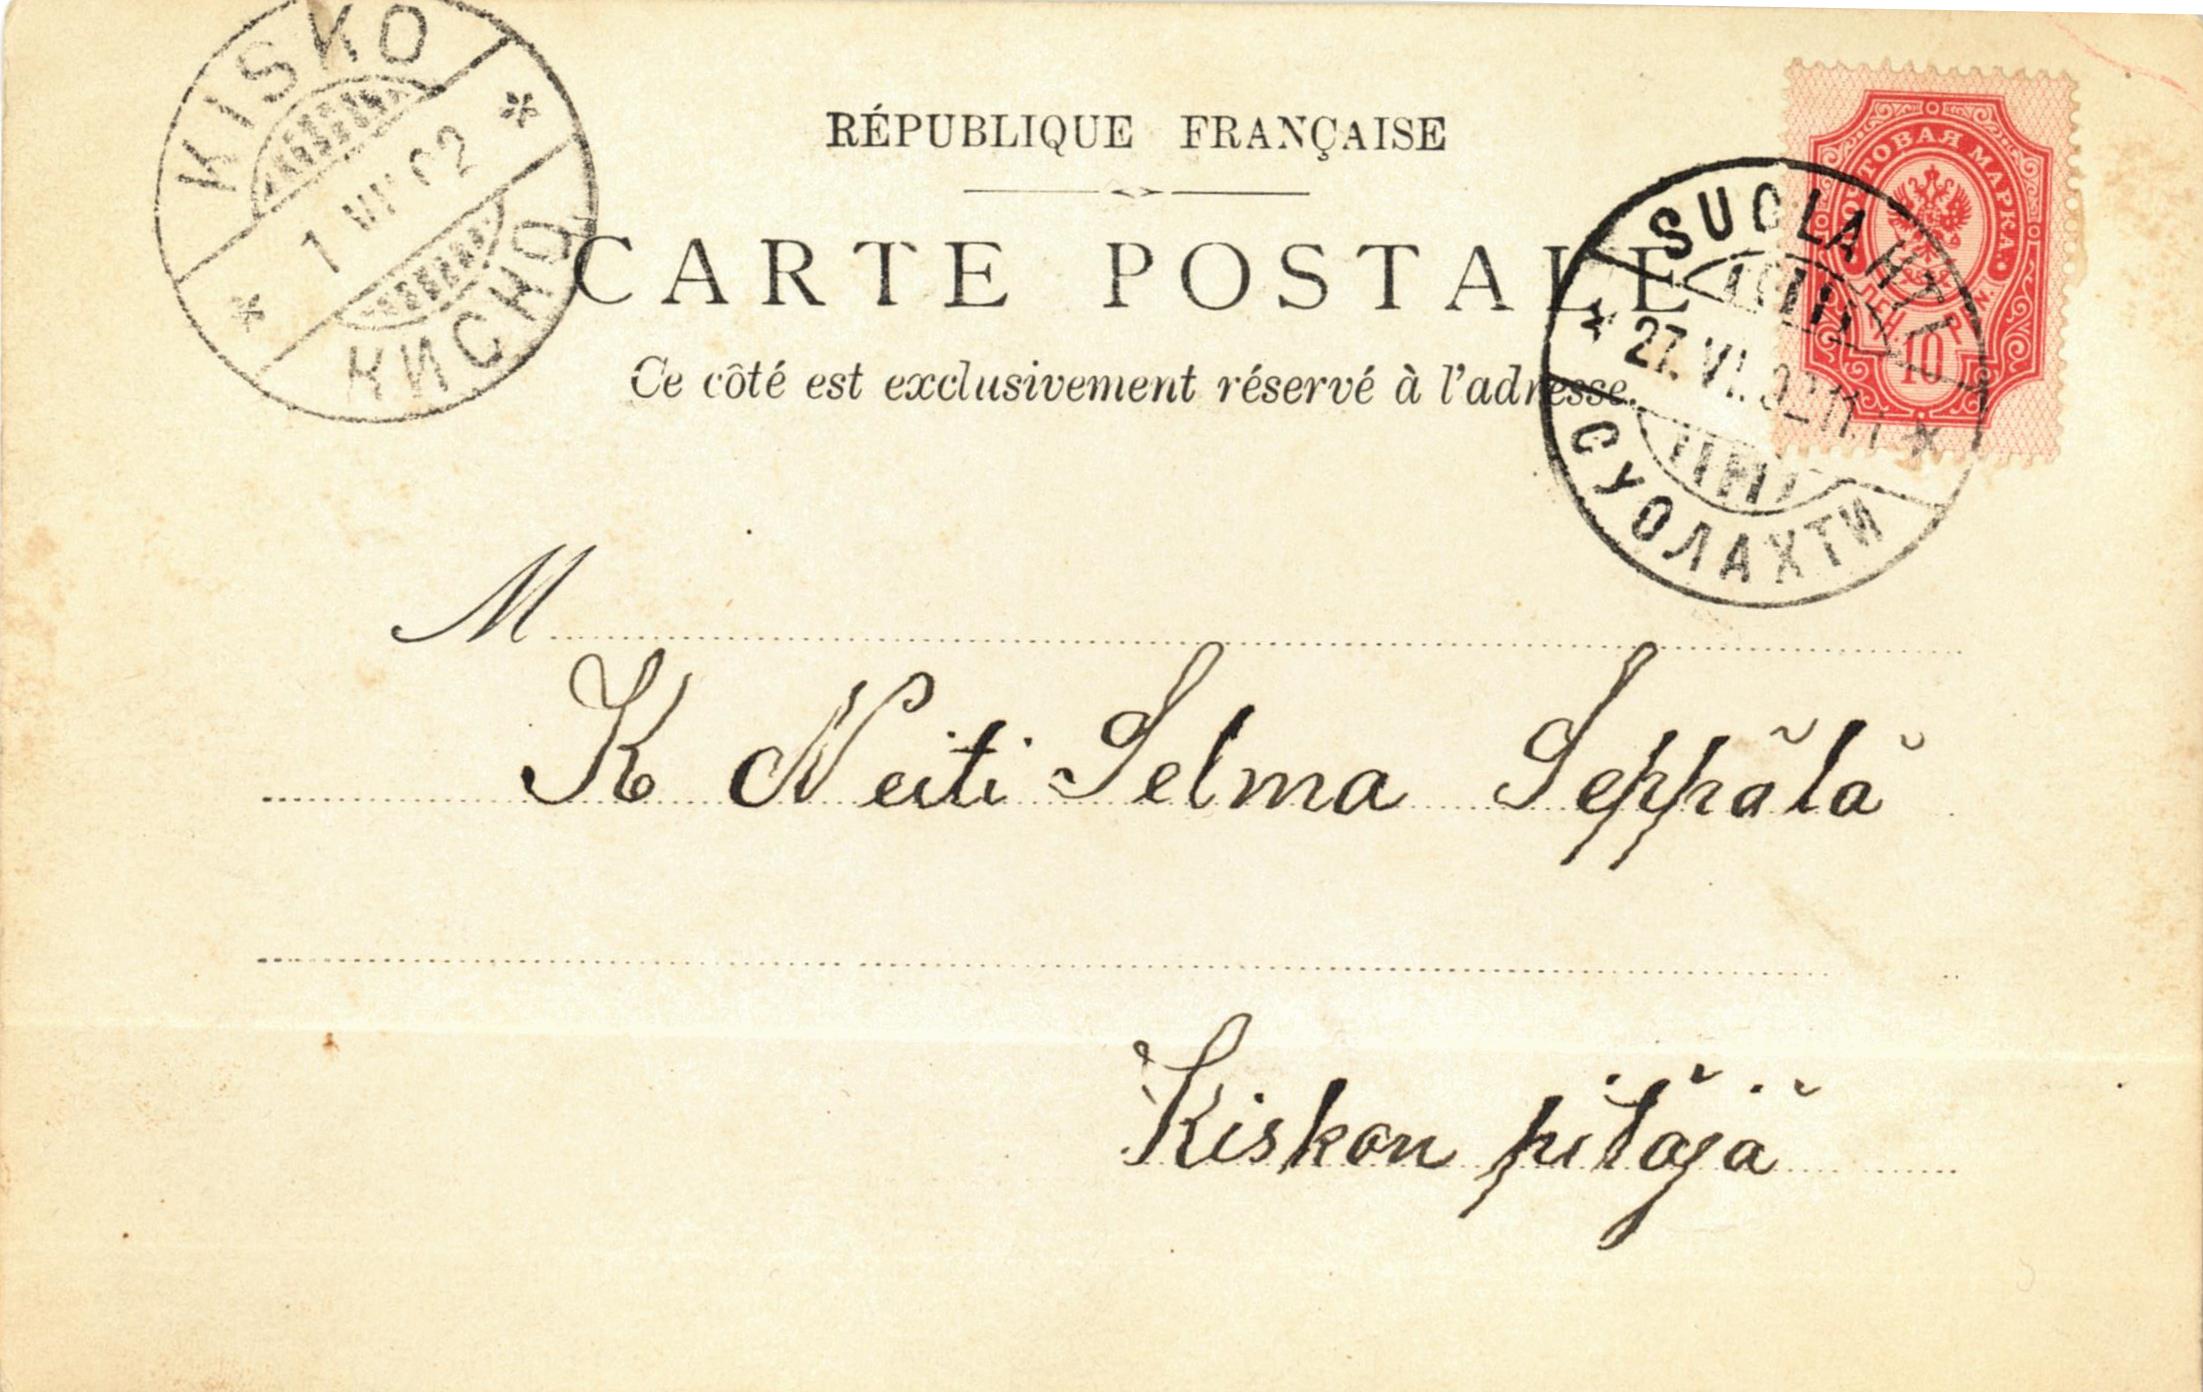 KISKO
1 VII 02
КИСКО
RÉPUBLIQUE FRANÇAISE
CARTE POSTALE
Ce côté est exclusivement réservé à l'adresse.
ПОЧТОВАЯ МАРКА.
10
SUOLAHTI
27. VI. 02 11
СУОЛАХТИ
M
K Neiti Selma Seppälä
Kiskon pitäjä